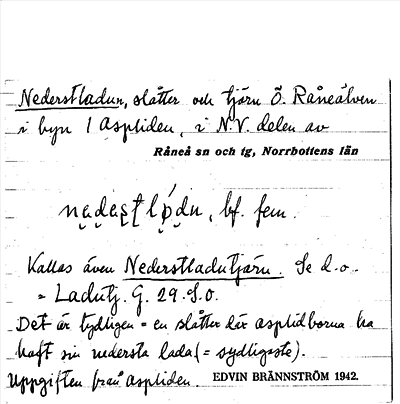 Nederstladun, slåtter och tjärn Ö. Råneälven
i byn 1 Aspliden, i N.V. delen av
Råneå sn och tg, Norrbottens län
bf. fem.
Kallas även Nederstladutjärn. Se d.o.
= Ladutj. G. 29. S.O.
Det är tydligen = en slåtter där asplidborna ha
haft sin nedersta lada (= sydligaste).
Uppgiften från Aspliden. EDVIN BRÄNNSTRÖM 1942.